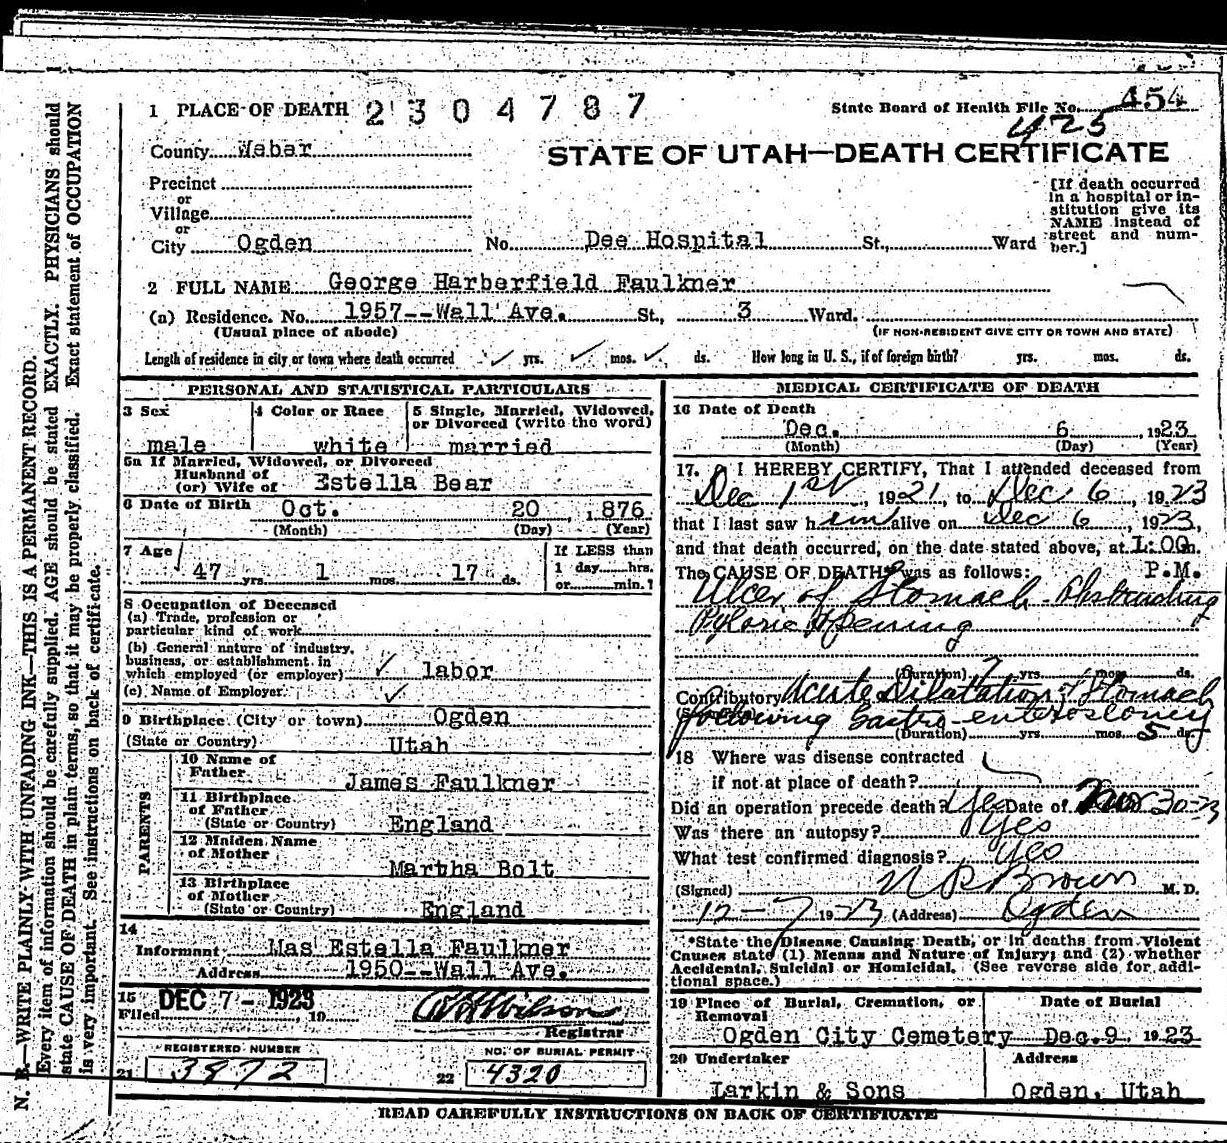 1 PLACE OF DEATH 2304787
State Board of Health File No. 454
425
County Weber
STATE OF UTAH—DEATH CERTIFICATE
Precinct
or
Village
or
City Ogden No. Dee Hospital St., Ward
[If death occurred
in a hospital or in-
stitution give its
NAME instead of
street and num-
ber.]
2 FULL NAME George Harberfield Faulkner
(a) Residence. No. 1957--Wall Ave. St., 3 Ward.
(Usual place of abode) (IF NON-RESIDENT GIVE CITY OR TOWN AND STATE)
Length of residence in city or town where death occurred ✓ yrs. ✓ mos. ✓ ds. How long in U. S., if of foreign birth? yrs. mos. ds.
PERSONAL AND STATISTICAL PARTICULARS
3 Sex
male
4 Color or Race
white
5 Single, Married, Widowed,
or Divorced (write the word)
married
5a If Married, Widowed, or Divorced
Husband of
(or) Wife of Estella Bear
6 Date of Birth Oct. 20, 1876
(Month) (Day) (Year)
7 Age
47 yrs. 1 mos. 17 ds.
If LESS than
1 day hrs.
or min.?
8 Occupation of Deceased
(a) Trade, profession or
particular kind of work
(b) General nature of industry,
business, or establishment in
which employed (or employer) ✓ labor
(c) Name of Employer ✓
9 Birthplace (City or town) Ogden
(State or Country) Utah
PARENTS
10 Name of
Father James Faulkner
11 Birthplace
of Father
(State or Country) England
12 Maiden Name
of Mother
Martha Bolt
13 Birthplace
of Mother
(State or Country) England
14
Informant Mas Estella Faulkner
Address 1950--Wall Ave.
15 DEC 7 - 1923
Filed 19
Wilson
Registrar
REGISTERED NUMBER
21 3872
NO. OF BURIAL PERMIT
22 4320
MEDICAL CERTIFICATE OF DEATH
16 Date of Death
Dec. 6, 1923
(Month) (Day) (Year)
17. I HEREBY CERTIFY, That I attended deceased from
Dec 1st, 1921, to Dec 6, 1923
that I last saw him alive on Dec 6, 1923,
and that death occurred, on the date stated above, at 1:00 m.
The CAUSE OF DEATH* was as follows: P.M.
Ulcer of Stomach Obstructing
Pyloric Opening
(Duration) 7 yrs. mos. ds.
Contributory Acute Dilatation of Stomach
following Gastro-enterostomy
(Duration) yrs. mos. 5 ds.
18 Where was disease contracted
if not at place of death?
Did an operation precede death? Yes Date of Nov 30-23
Was there an autopsy? Yes
What test confirmed diagnosis? Yes
(Signed) Brown M.D.
12-7 1923 (Address) Ogden
*State the Disease Causing Death, or in deaths from Violent
Causes state (1) Means and Nature of Injury; and (2) whether
Accidental, Suicidal or Homicidal. (See reverse side for addi-
tional space.)
19 Place of Burial, Cremation, or
Removal
Ogden City Cemetery
Date of Burial
Dec. 9, 1923
20 Undertaker
Larkin & Sons
Address
Ogden, Utah
READ CAREFULLY INSTRUCTIONS ON BACK OF CERTIFICATE
N. B.—WRITE PLAINLY WITH UNFADING INK—THIS IS A PERMANENT RECORD.
Every item of information should be carefully supplied. AGE should be stated EXACTLY. PHYSICIANS should
state CAUSE OF DEATH in plain terms, so that it may be properly classified. Exact statement of OCCUPATION
is very important. See instructions on back of certificate.